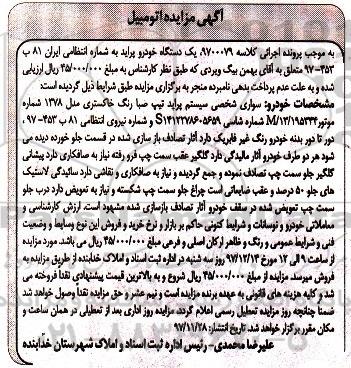 آگهی مزایده اتومبیل
به موجب پرونده اجرائی کلاسه ۹۷۰۰۰۷۹ یک دستگاه خودرو پراید به شماره انتظامی ایران ۸۱ ب
۴۵۳-۹۷ متعلق به آقای بهمن بیگ ویردی که طبق نظر کارشناس به مبلغ ۴۵/۰۰۰/۰۰۰ ریال ارزیابی
شده و به علت عدم پرداخت بدهی نامبرده منجر به برگزاری مزایده طبق شرایط ذیل گردیده است:
مشخصات خودرو: سواری شخصی سیستم پراید تیپ صبا رنگ خاکستری مدل ۱۳۷۸ شماره
موتور M/۱۳/۱۹۵۳۴۴ شماره شاسی S۱۴۱۲۲۷۸۶۰۵۶۵۹ و شماره نیروی انتظامی ۸۱ ب ۴۵۳-۹۷،
دور تا دور بدنه خودرو رنگ غیر فابریک دارد آثار تصادف بازسازی شده در قسمت جلو خورده دیده می
شود هر دو طرف خودرو آثار مالیدگی دارد گلگیر عقب سمت چپ فرو رفته نیاز به صافکاری دارد پیشانی
گلگیر جلو سمت چپ تصادف نموده و جمع گردیده و نیاز به صافکاری و نقاشی دارد سائیدگی لاستیک
های جلو ۵۰ درصد و عقب ضایعاتی است چراغ جلو سمت چپ شکسته و نیاز به تعویض دارد درب جلو
سمت چپ تعویض شده در سقف خودرو آثار تصادف بازسازی شده مشهود است. ارزش کارشناسی و
معاملاتی خودرو و نوسانات و شرایط کنونی حاکم بر بازار و نرخ خرید و فروش این نوع وسایط و وضعیت
فنی و شرایط عمومی و رنگ و ظاهر ارکان اصلی و فرعی مبلغ ۴۵/۰۰۰/۰۰۰ ریال می باشد. مورد مزایده
از ساعت ۹ الی ۱۲ مورخ ۹۷/۱۲/۱۴ روز سه شنبه در اداره ثبت اسناد و املاک خدابنده از طریق مزایده به
فروش میرسد. مزایده از مبلغ ۴۵/۰۰۰/۰۰۰ ریال شروع و به بالاترین قیمت پیشنهادی نقدا فروخته می
شد و کلیه هزینه های قانونی به عهده برنده مزایده است و نیم عشر و حق مزایده نقدا وصول خواهد شد
ضمنا چنانچه روز مزایده تعطیل رسمی اعلام گردد، مزایده روز اداری بعد از تعطیلی در همان ساعت و
مکان مقرر برگزار خواهد شد. تاریخ انتشار: ۹۷/۱۱/۲۸
علیرضا محمدی- رئیس اداره ثبت اسناد و املاک شهرستان خدابنده